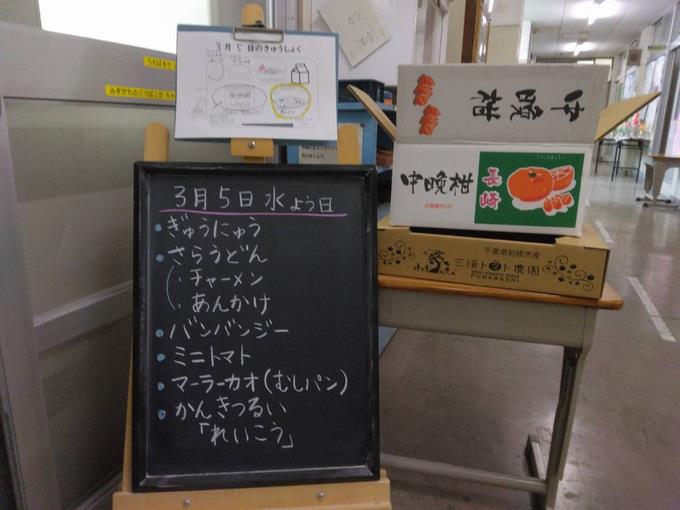 うわばきで
みぎがわのくつばこの
3月5日のきゅうしょく
3月5日 水よう日
ぎゅうにゅう
さらうどん
チャーメン
あんかけ
バンバンジー
ミニトマト
マーラーカオ(むしパン)
かんきつるい
「れいこう」
中晩柑
中晩柑
長崎
千葉県船橋市産
三須トマト農園
FUNABASHI